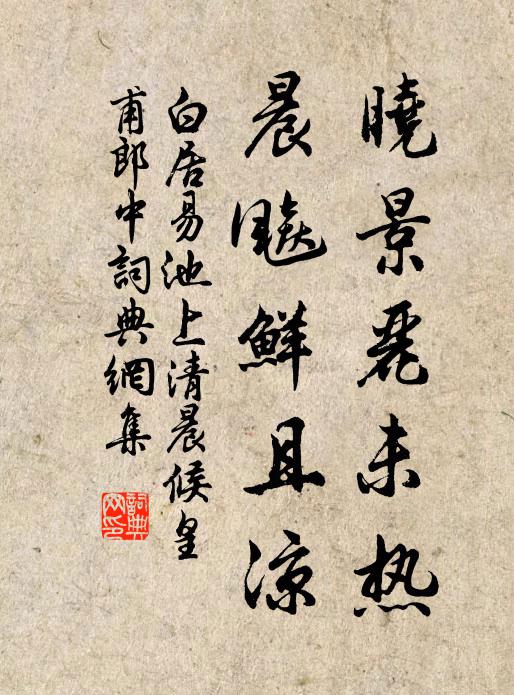 曉景麗未热
晨飈鮮且涼
白居易池上清晨候皇
甫郎中詞典網集
詞典
网印